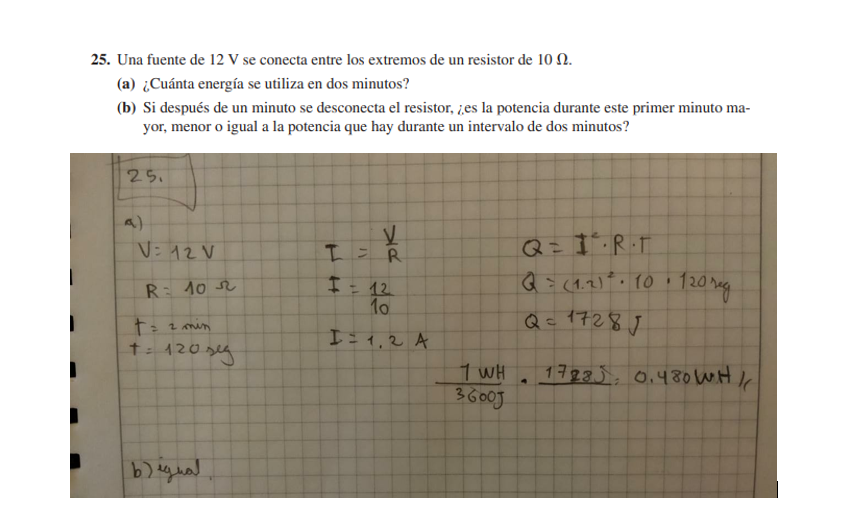 25. Una fuente de 12 V se conecta entre los extremos de un resistor de 10 Ω.
(a) ¿Cuánta energía se utiliza en dos minutos?
(b) Si después de un minuto se desconecta el resistor, ¿es la potencia durante este primer minuto ma-
yor, menor o igual a la potencia que hay durante un intervalo de dos minutos?
25.
a)
V= 12 V
R= 10 Ω
t= 2 min
t= 120 seg
I = V/R
I = 12/10
I = 1,2 A
Q = I². R . T
Q = (1.2)² . 10 . 120 seg
Q = 1728 J
1 WH / 3600J . 1728J = 0.480 WH
b) igual.